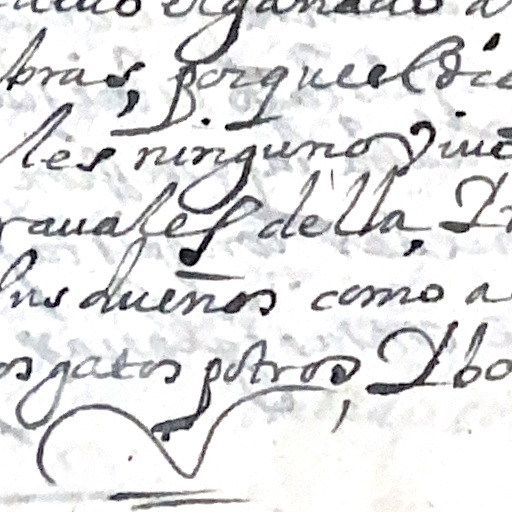 ganado a
bras, porque el die
les ninguno viue
rauales della, Yn
sus dueños como a
os gatos potros, Y bo